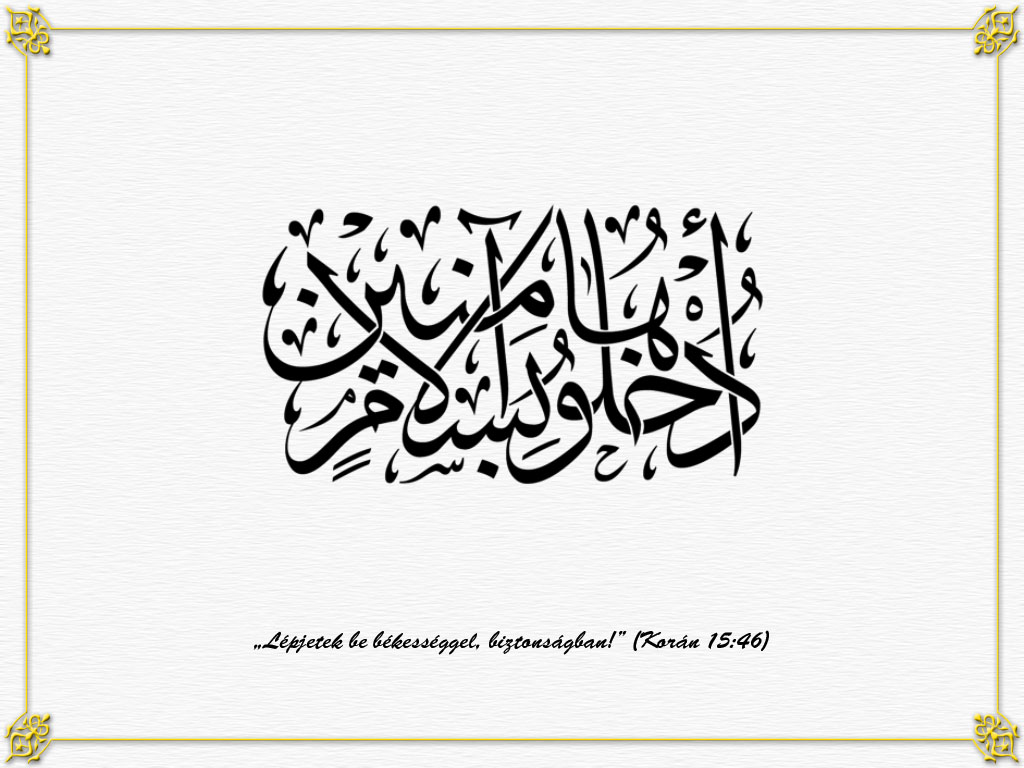 ٱدْخُلُوهَا بِسَلَامٍ آمِنِينَ
„Lépjetek be békességgel, biztonságban!” (Korán 15:46)